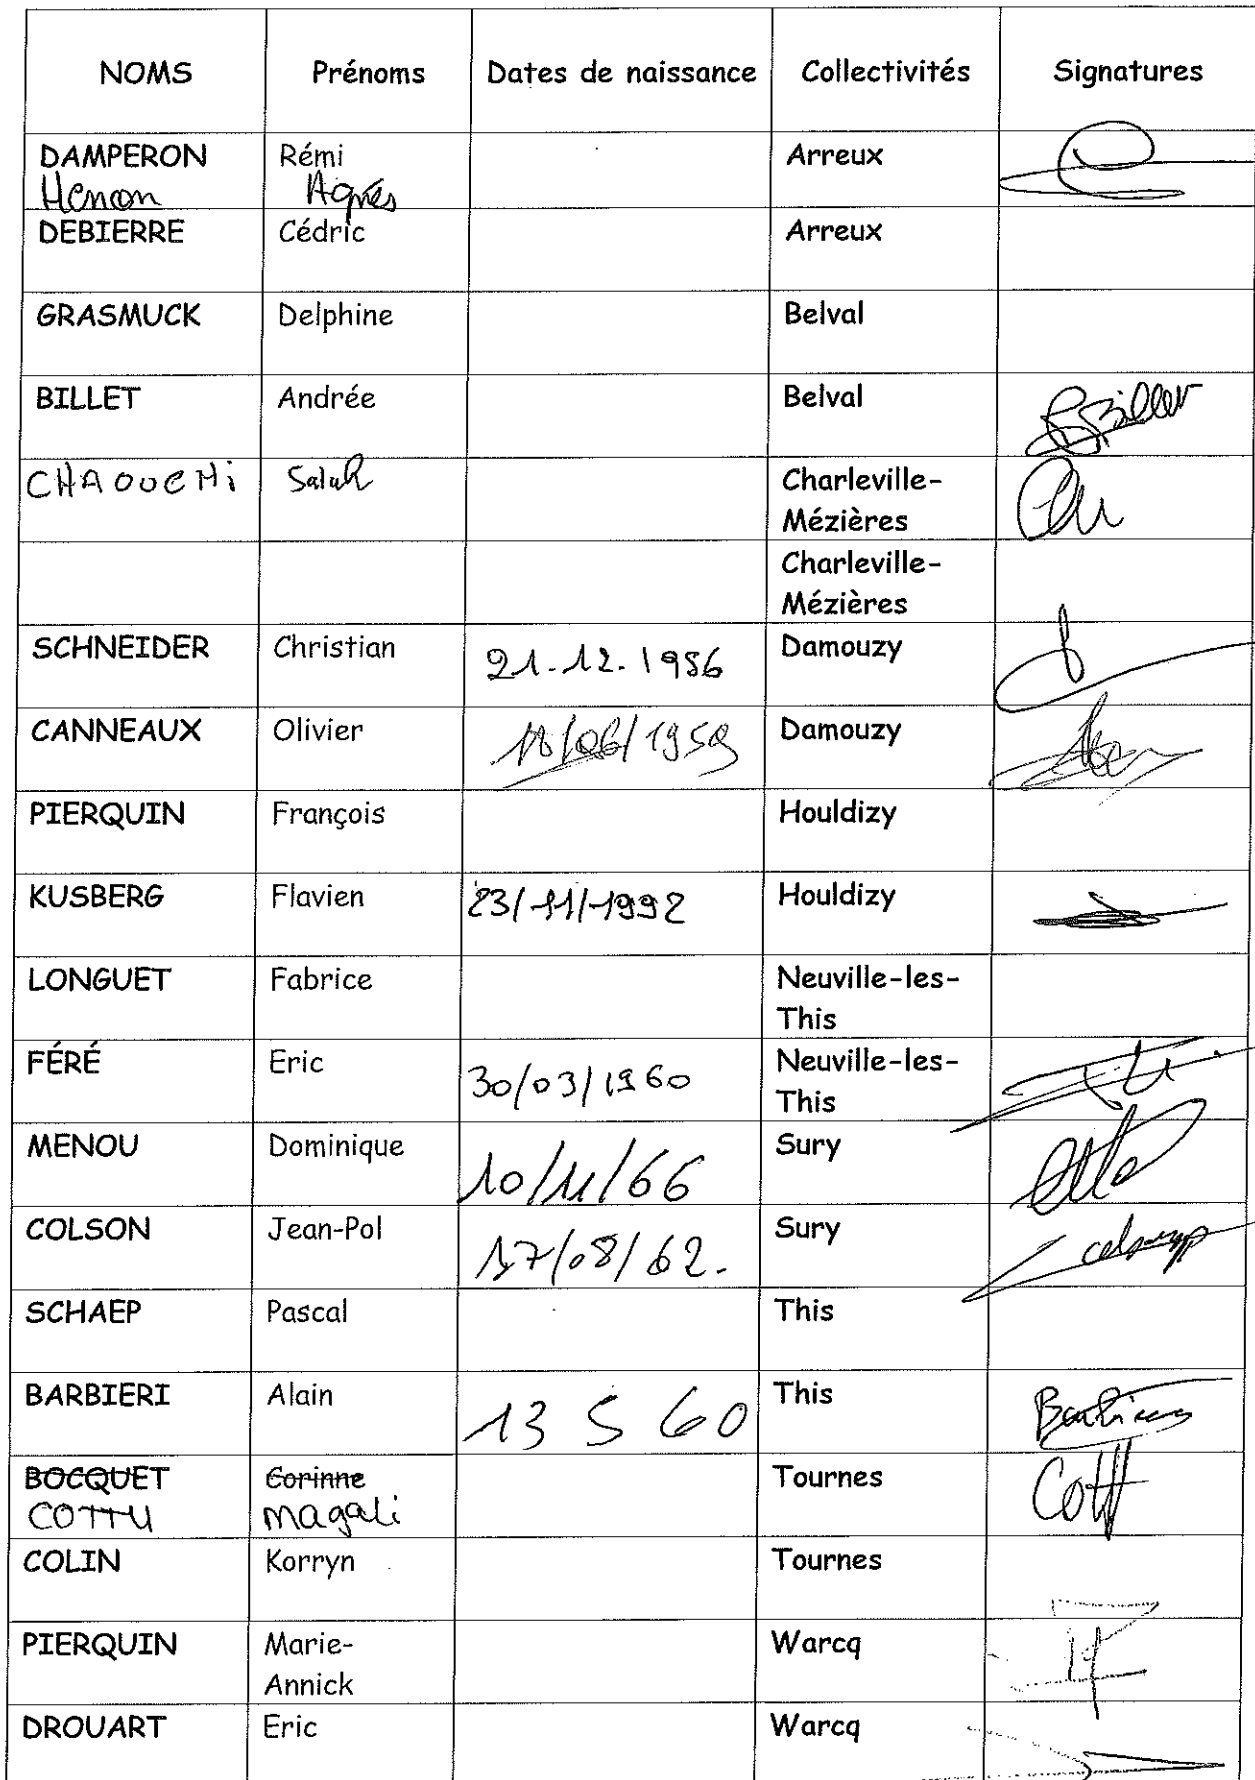 NOMS Prénoms Dates de naissance Collectivités Signatures
DAMPERON Rémi Arreux
Henon Agnès
DEBIERRE Cédric Arreux
GRASMUCK Delphine Belval
BILLET Andrée Belval
Billet
CHAOUCHi Salah Charleville-
Mézières
Charleville-
Mézières
SCHNEIDER Christian 21.12.1956 Damouzy
CANNEAUX Olivier /06/1959 Damouzy
PIERQUIN François Houldizy
KUSBERG Flavien 23/11/1992 Houldizy
LONGUET Fabrice Neuville-les-
This
FÉRÉ Eric 30/03/1960 Neuville-les-
This
MENOU Dominique 10/11/66 Sury
COLSON Jean-Pol 17/08/62. Sury
SCHAEP Pascal This
BARBIERI Alain 13 5 60 This Barbieri
BOCQUET Corinne Tournes
COTTU Magali Cott
COLIN Korryn Tournes
PIERQUIN Marie-
Annick Warcq
DROUART Eric Warcq